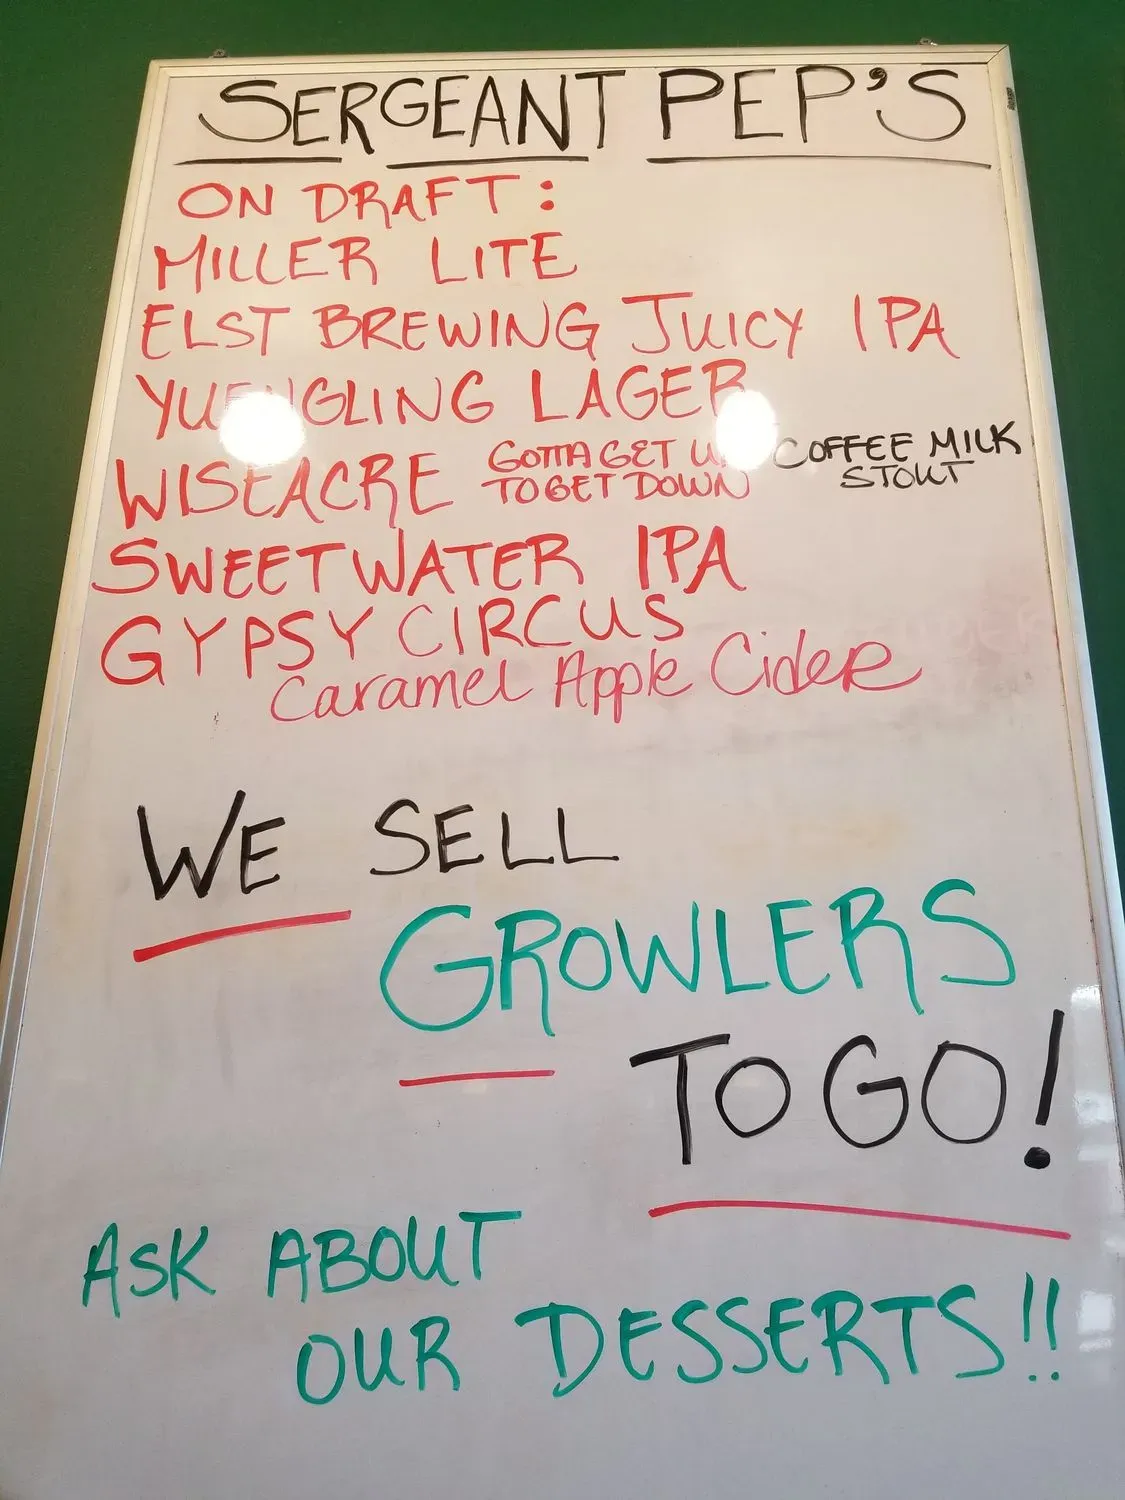 SERGEANT PEP'S
ON DRAFT:
MILLER LITE
ELST BREWING JUICY IPA
YUENGLING LAGER
WISEACRE GOTTA GET UP COFFEE MILK
TO GET DOWN STOUT
SWEETWATER IPA
GYPSY CIRCUS
Caramel Apple Cider
WE SELL
GROWLERS
TO GO!
ASK ABOUT
OUR DESSERTS!!